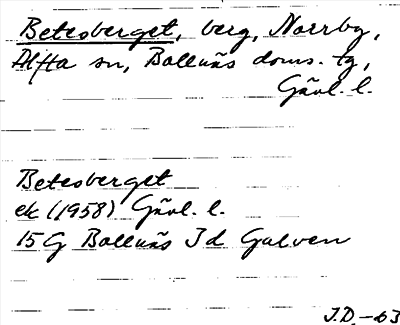 Betesberget, berg, Norrby,
Alfta sn, Bollnäs doms. tg,
Gävl. l.
Betesberget
ek (1958) Gävl. l.
15G Bollnäs 3d Galven
J.D. -63